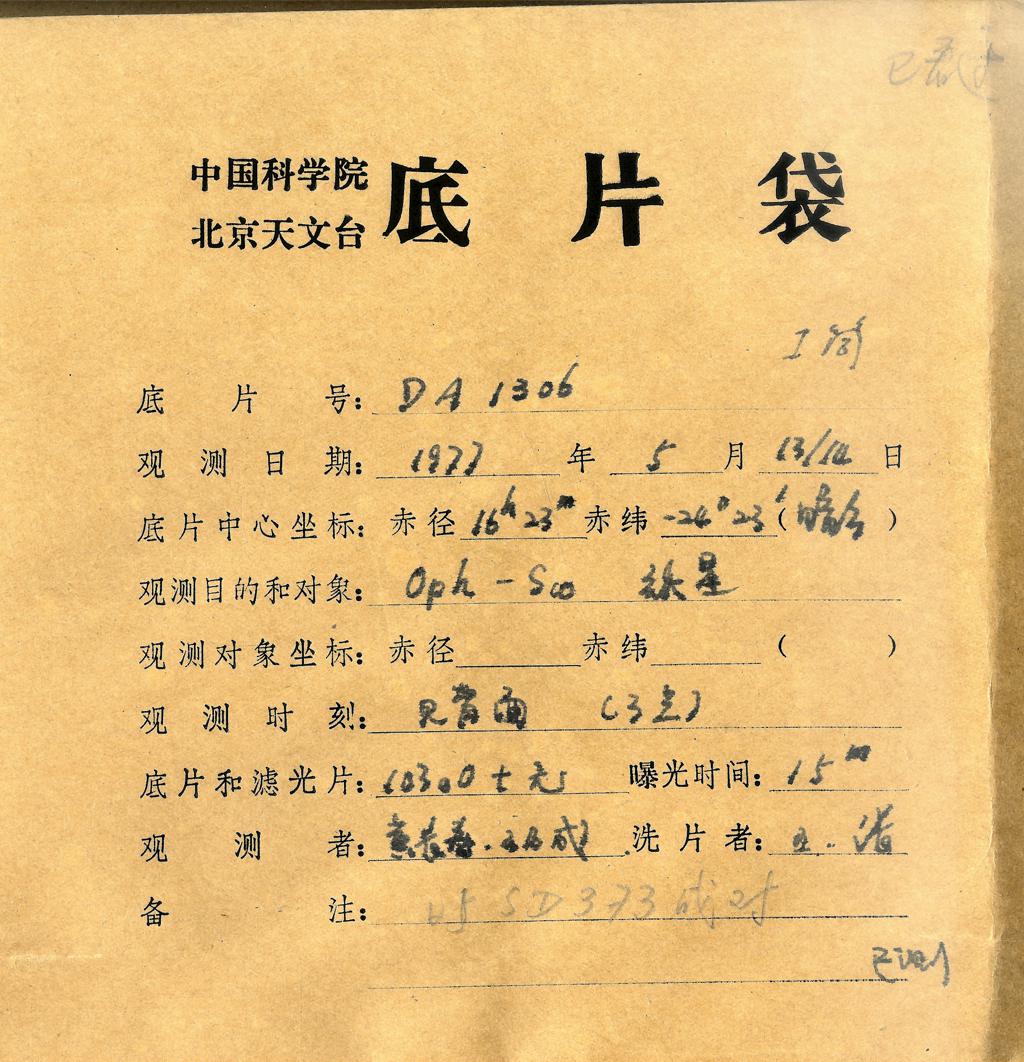 已看过
中国科学院
北京天文台
底片袋
底片号： DA 1306
观测日期： 1977 年 5 月 13/14 日
底片中心坐标： 赤径 16h 23m 赤纬 -24° 23′ ( )
观测目的和对象： Oph - Sco 耀星
观测对象坐标： 赤径 赤纬 ( )
观测时刻： 见背面 (3点)
底片和滤光片： 103aO + 无 曝光时间： 15m
观测者： 洗片者：
备注： 与 SD373 成对
已测